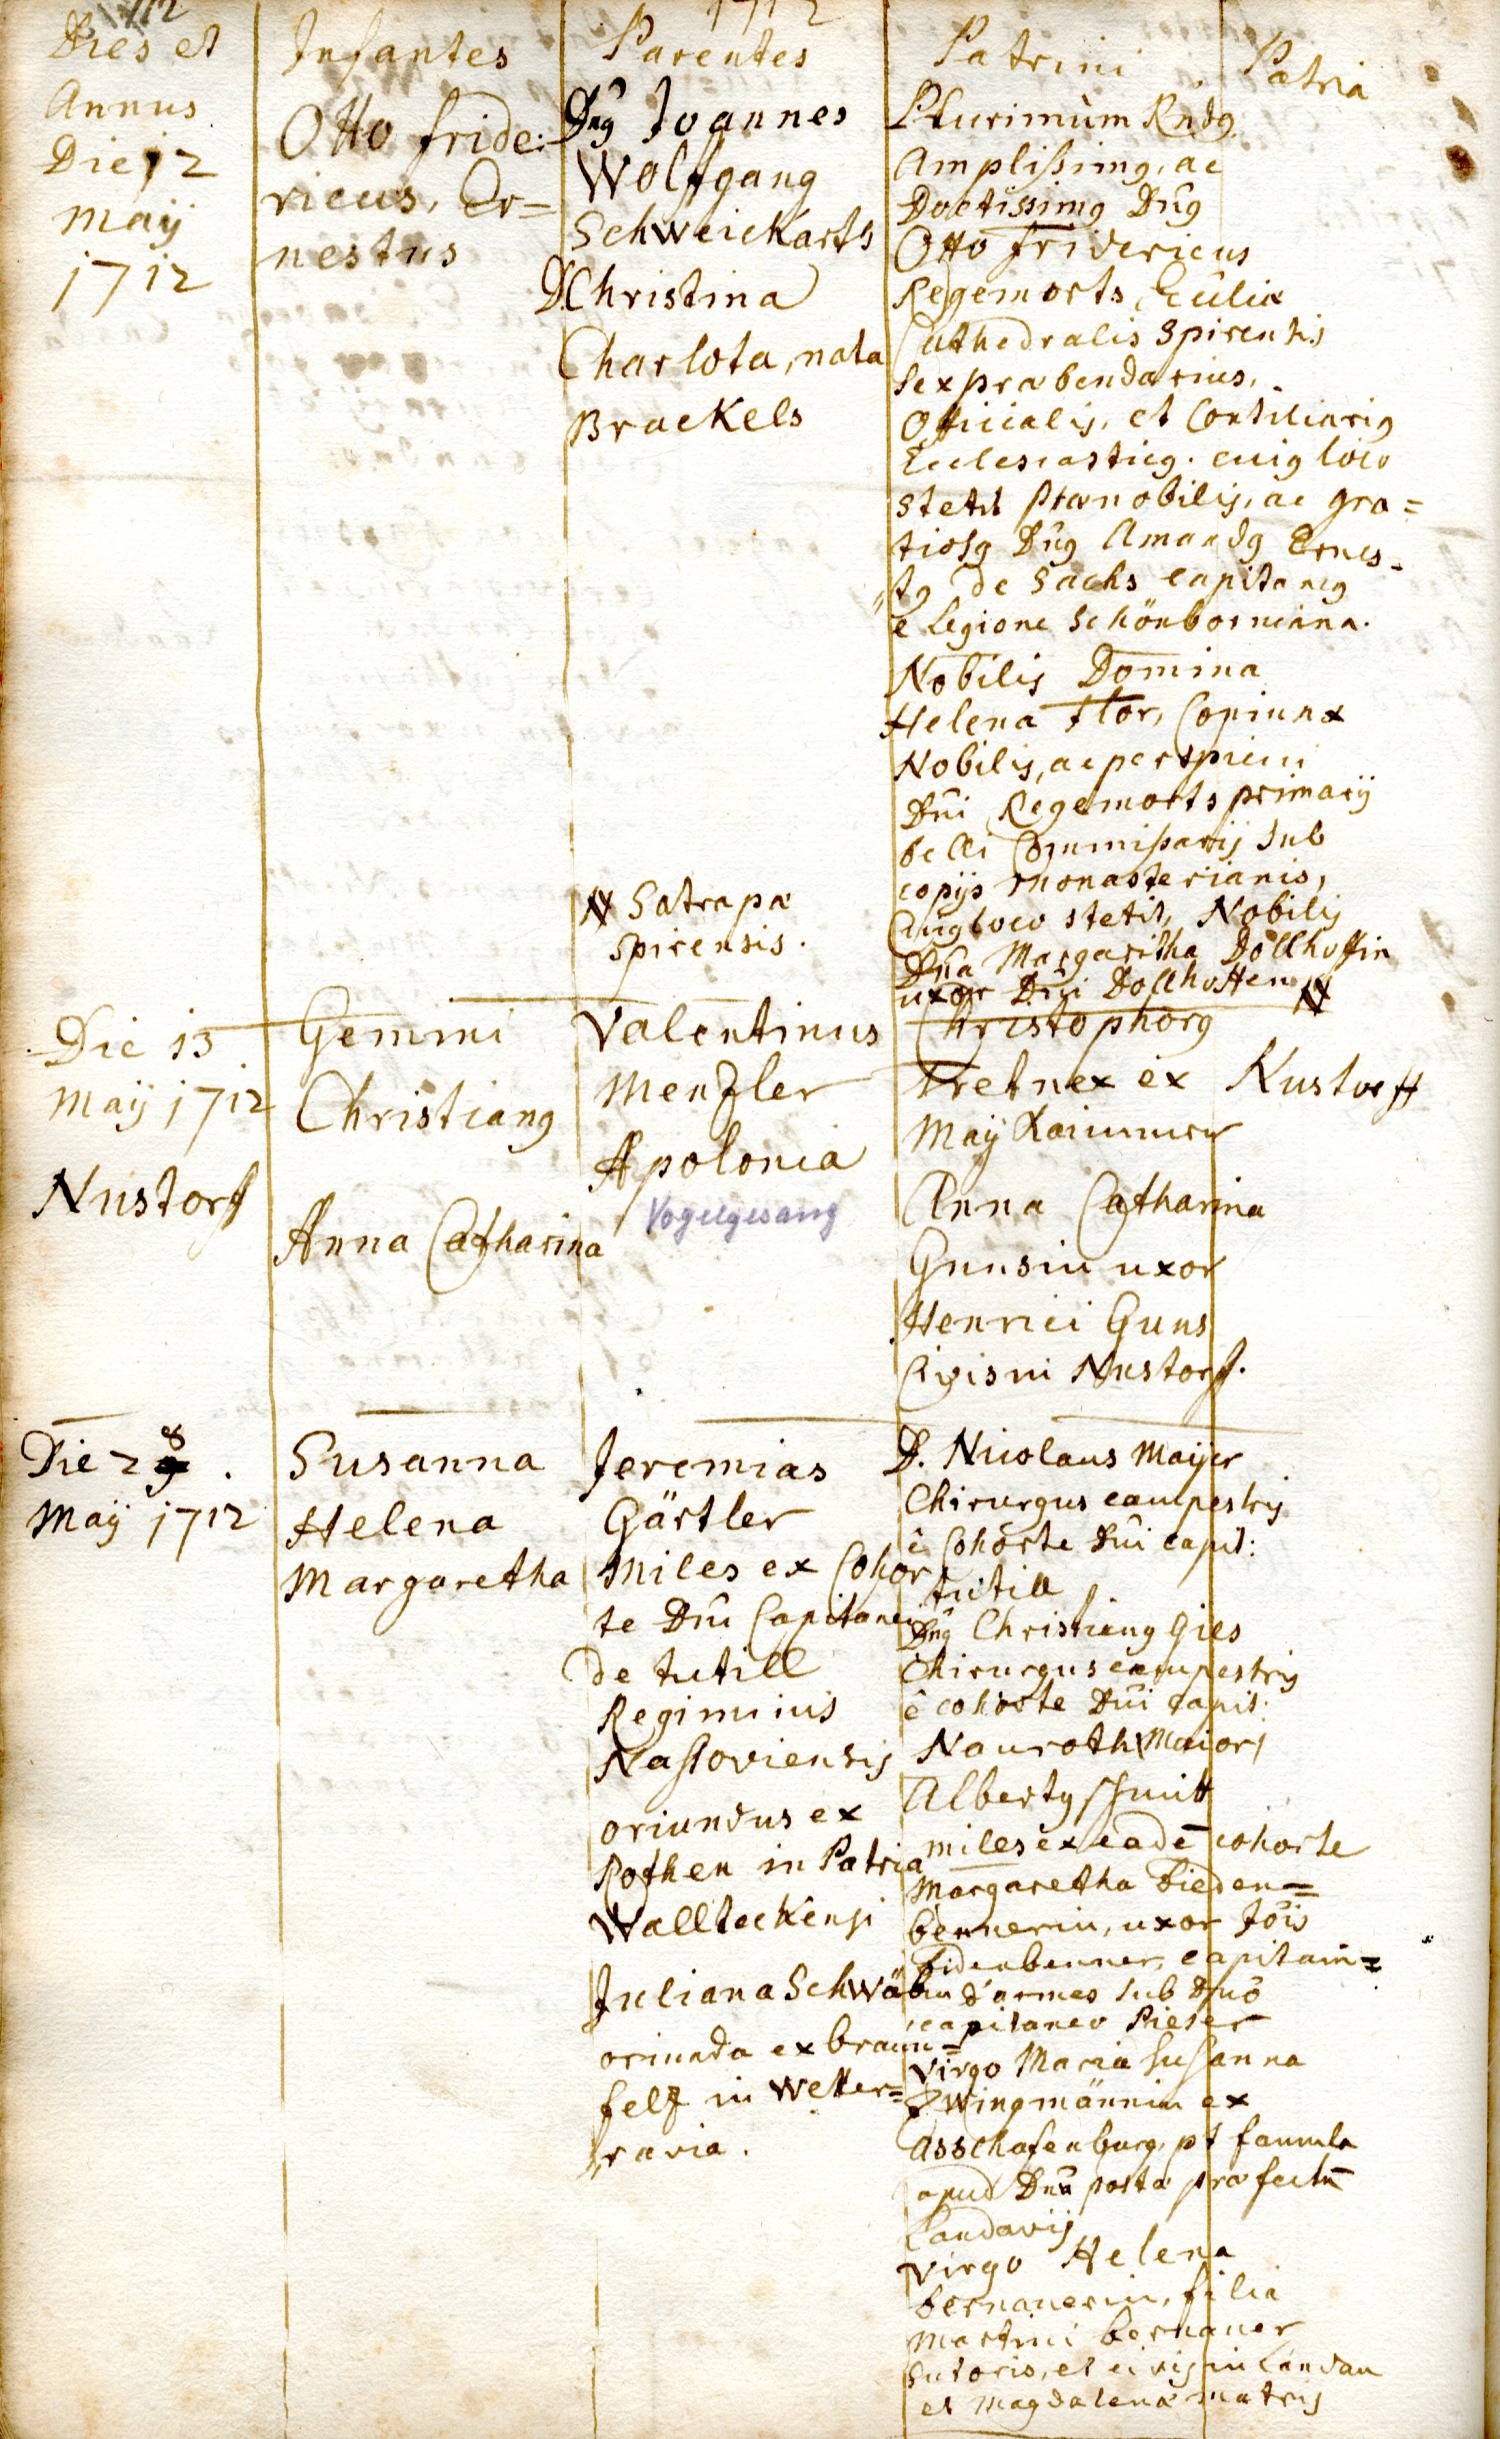 112
1712
Dies et
Annus
Infantes
Parentes
Patrini
Patria
Die 12
Maij
1712
Otto fride:
ricus, Er=
nestus
Dng Joannes
Wolffgang
Schweickarts
D. Christina
Charlota, nata
Brackels
Plurimùm Rndg
Amplißimg, ac
Doctissimg Dng
Otto fridericus
Regemorts, Eccliæ
Cathedralis Spirensis
Sexpræbendarius,
Officialis, et Consiliarig
Ecclesiasticg. cuig loco
stetit Prænobilis, ac gra=
tiosg Dng Amandg Ernes-
tg de Sachs capitaneg
e legione Schönborniana.
Nobilis Domina
Helena Flor, Conjunx
Nobilis, ac perspicui
Dni Regemorts primarij
belli Commißarij sub
copijs monasterianis,
Cuig loco stetit, Nobilis
Dna Margaritha Dollhoffin
uxor Dni Dollhoffen
Satrapæ
Spirensis.
Die 13
Maij 1712
Nustorf
Gemini
Christiang
Anna Catharina
Valentinus
Menzler
Apolonia
Vogelgesang
Christophorg
Tretnex ex Nustorff
Maij
Anna Catharina
Gunsin uxor
Henrici Guns
Civis in Nustorf.
Die 28.
Maij 1712
Susanna
Helena
Margaretha
Jeremias
Gärtler
Miles ex Cohor
te Dni Capitanei
de tutill
Regiminis
Nassoviensis
oriundus ex
Rothen in Patria
Walldeckensi
Juliana Schwäbin
oriunda ex braun=
felz in Wetter=
ravia.
D. Nicolaus Maijer
Chirurgus campestris
è Cohorte Dni capit:
tutill
Dng Christiang Gies
Chirurgus campestris
è cohorte Dni capit:
Nauroth Maior
Albertg Schmitt
miles ex eadē cohorte
Margaretha bieden=
bennerin, uxor Jois
bidenbenner, capitain=
d'armes sub Dno
capitaneo Rieser
Virgo Maria Susanna
Zwingmännin ex
Asschafenburg, pt famula
apud Dnu postæ præfectū
Landavij
Virgo Helena
bernauerin, filia
Martini bernauer
Sutoris, et civis in Landau
et Magdalenæ matris